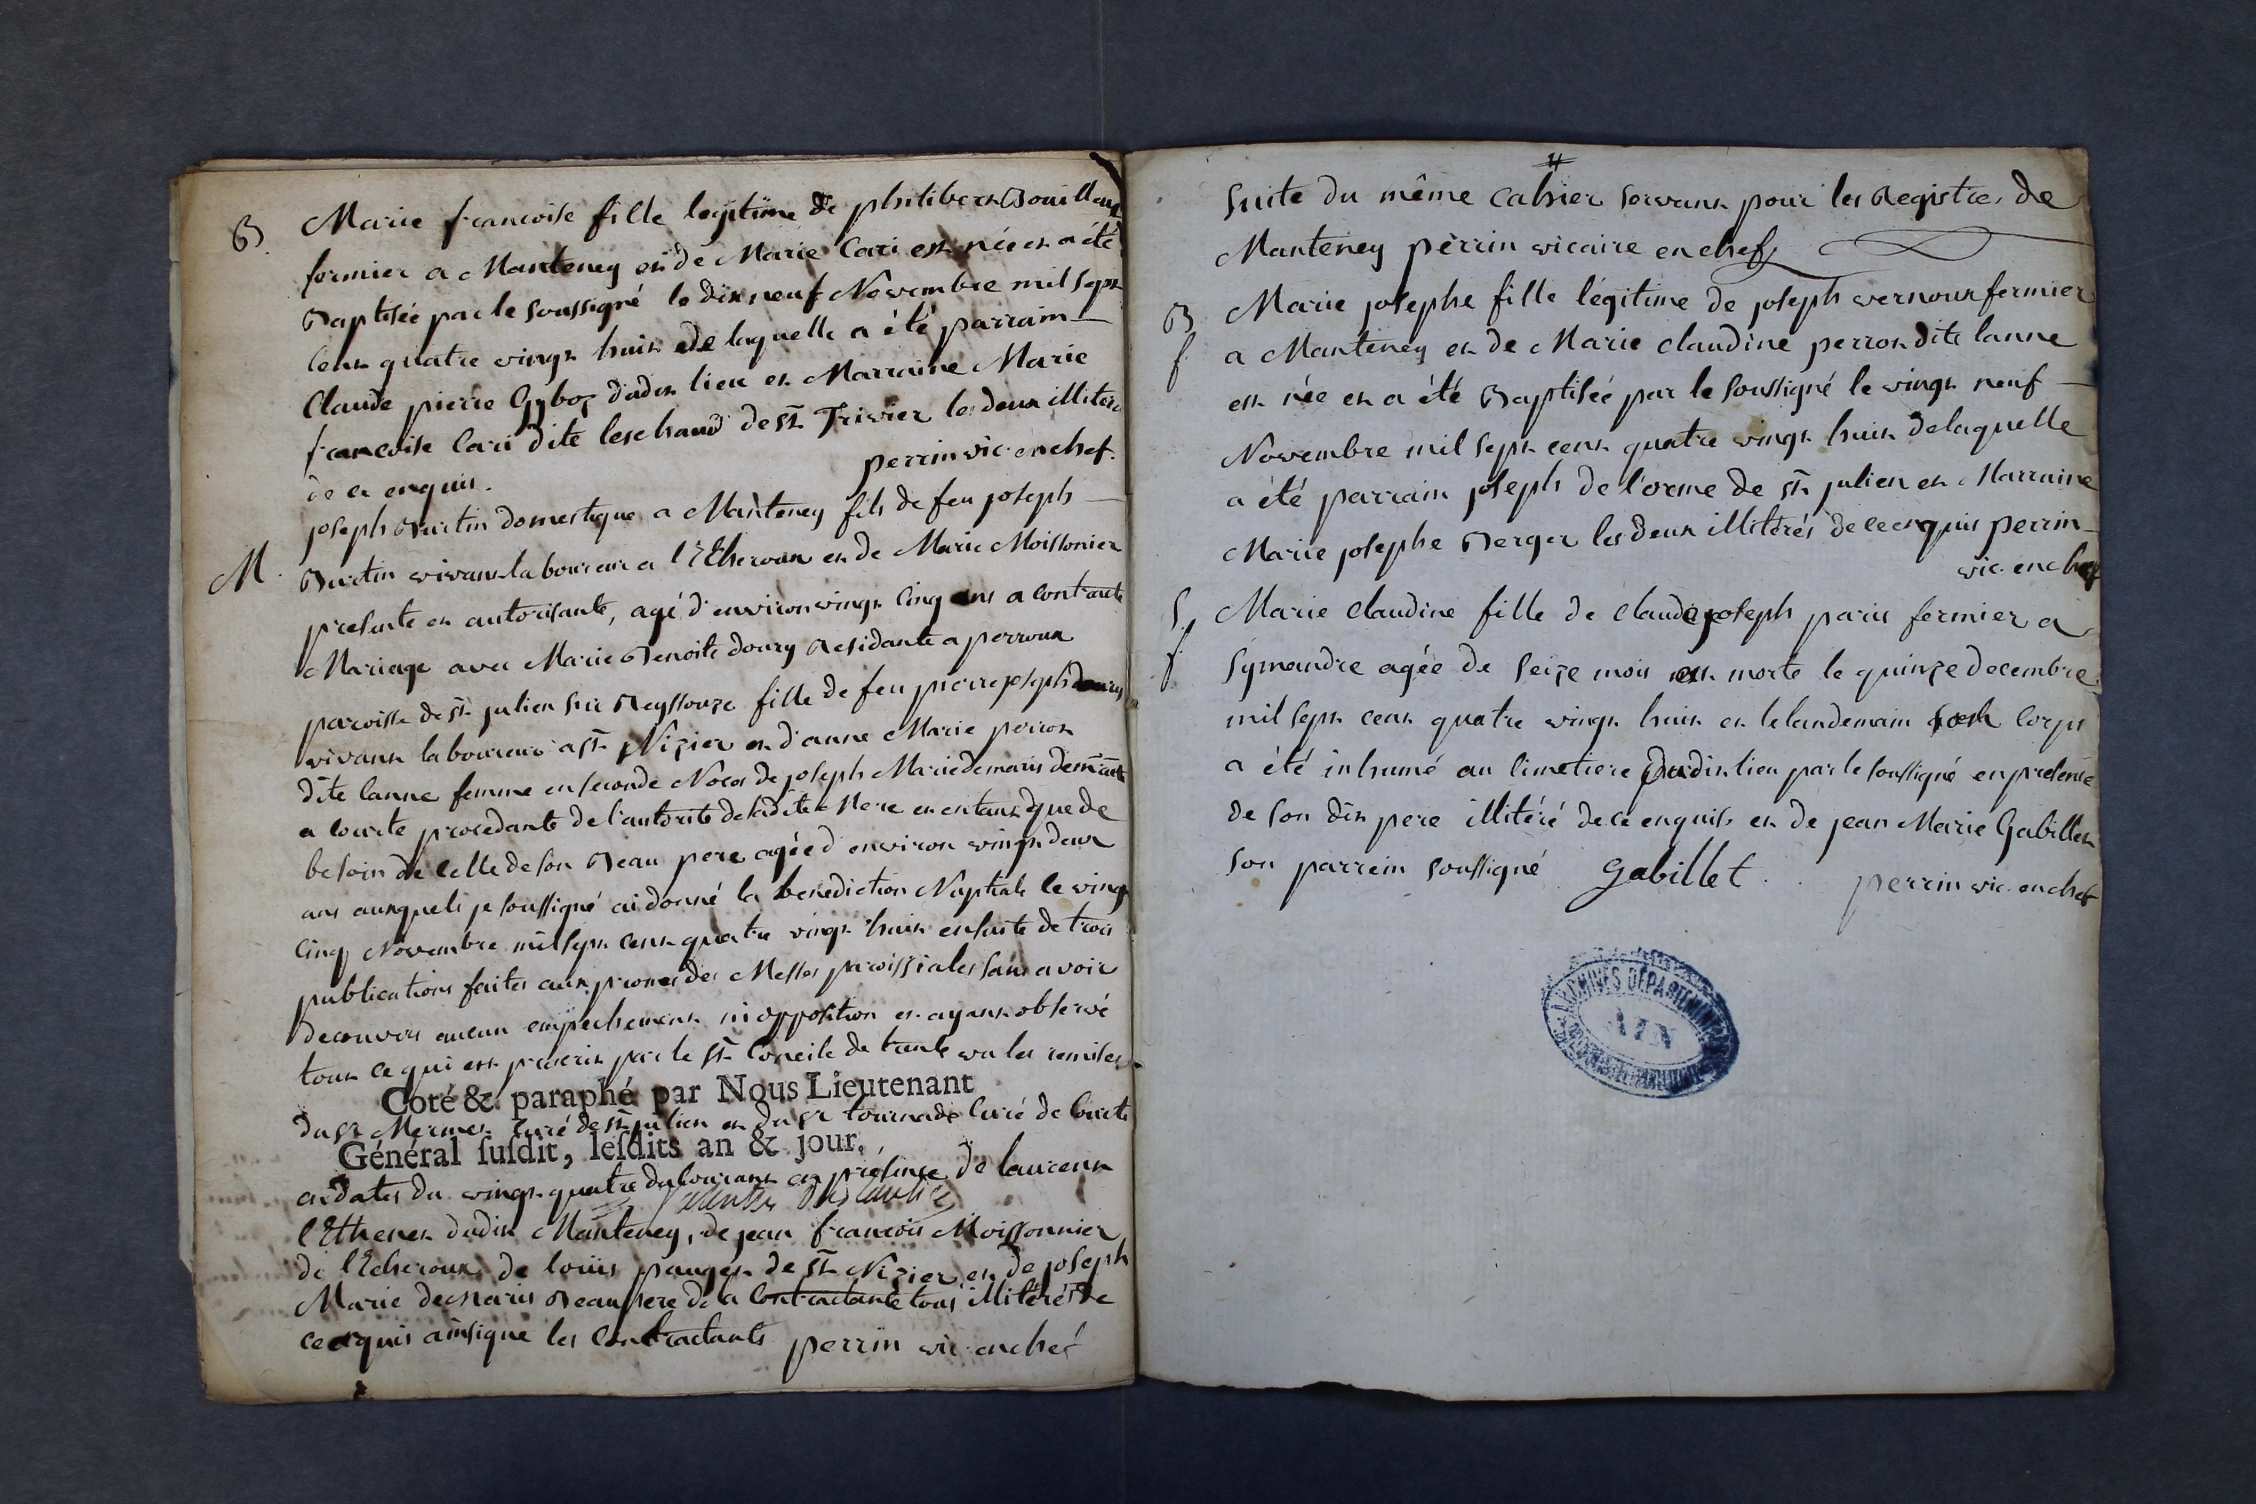 B. Marie francoise fille legitime de philibert Bouilloux
fermier a Manteney et de Marie Cari est née et a été
Baptisée par le soussigné le dix neuf Novembre mil sept
cent quatre vingt huit de laquelle a été parrain
Claude pierre dudit lieu et Marraine Marie
francoise Cari dite leschaud de st Trivier les deux illiteré
de ce enquis. perrin vic. en chef.
M. joseph Burtin domestique a Manteney fils de feu joseph
Burtin vivant laboureur a l'Echeroux et de Marie Moissonier
presente et autorisante, agé d'environ vingt cinq ans a contracté
Mariage avec Marie Benoite doury Residante a perroux
paroisse de st julien sur Reyssouze fille de feu pierre joseph doury
vivant laboureur a st Nizier et d'anne Marie perron
dite lanne femme en seconde Noces de joseph Marie demaris
a courte procedante de l'autorité de ladite Mere et entant que de
besoin de celle de son Beau pere agée d'environ vingt deux
ans auxquels je soussigné ai donné la benediction Nuptiale le vingt
cinq Novembre mil sept cent quatre vingt huit ensuite de trois
publications faites aux prones des Messes paroissiales sans avoir
decouvers aucun empechement ni opposition et ayant observé
tout ce qui est prescrit par le st Concile de trente vu les remises
Coté & paraphé par Nous Lieutenant
du sr Mermet Curé de st julien et du sr tournade Curé de Courte
Général ſuſdit, leſdits an & jour.
en dates du vingt quatre du courant en présence de laurent
l'Ethenet dudit Manteney, de jean francois Moissonnier
de l'Echeroux, de louis pauget de st Nizier et de joseph
Marie demaris Beaupere de la Contractante tous illiterés de
ce enquis ainsi que les Contractants perrin vic. en chef
suite du même cahier servant pour les Registres de
Manteney perrin vicaire en chef
B Marie josephe fille légitime de joseph vernoux fermier
f. a Manteney et de Marie claudine perron dite lanne
est née et a été Baptisée par le soussigné le vingt neuf
Novembre mil sept cent quatre vingt huit de laquelle
a été parrain joseph de l'orme de st julien et Marraine
Marie josephe Berger les deux illitérés de ce enquis perrin
vic. en chef
S. Marie claudine fille de claude joseph paris fermier a
f. Symandre agée de seize mois est morte le quinze decembre
mil sept cent quatre vingt huit et le landemain son corps
a été inhumé au cimetiere dudit lieu par le soussigné en presence
de son dit pere illitéré de ce enquis et de jean Marie Gabillet
son parrein soussigné Gabillet . . perrin vic. en chef
ARCHIVES DÉPARTEMENTALES
AIN